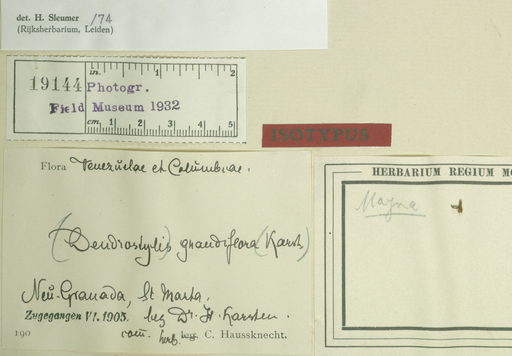 det. H. Sleumer /74
(Rijksherbarium, Leiden)
in. 1 2
19144 Photogr.
Field Museum 1932
cm. 1 2 3 4 5
ISOTYPUS
Flora Venezuelae et Columbiae.
(Dendrostylis) grandiflora (Karst)
Neu-Granada, St Marta.
Zugegangen VI. 1905. leg Dr. H. Karsten.
190 com. herb. leg. C. Haussknecht.
HERBARIUM REGIUM MO
Mayna